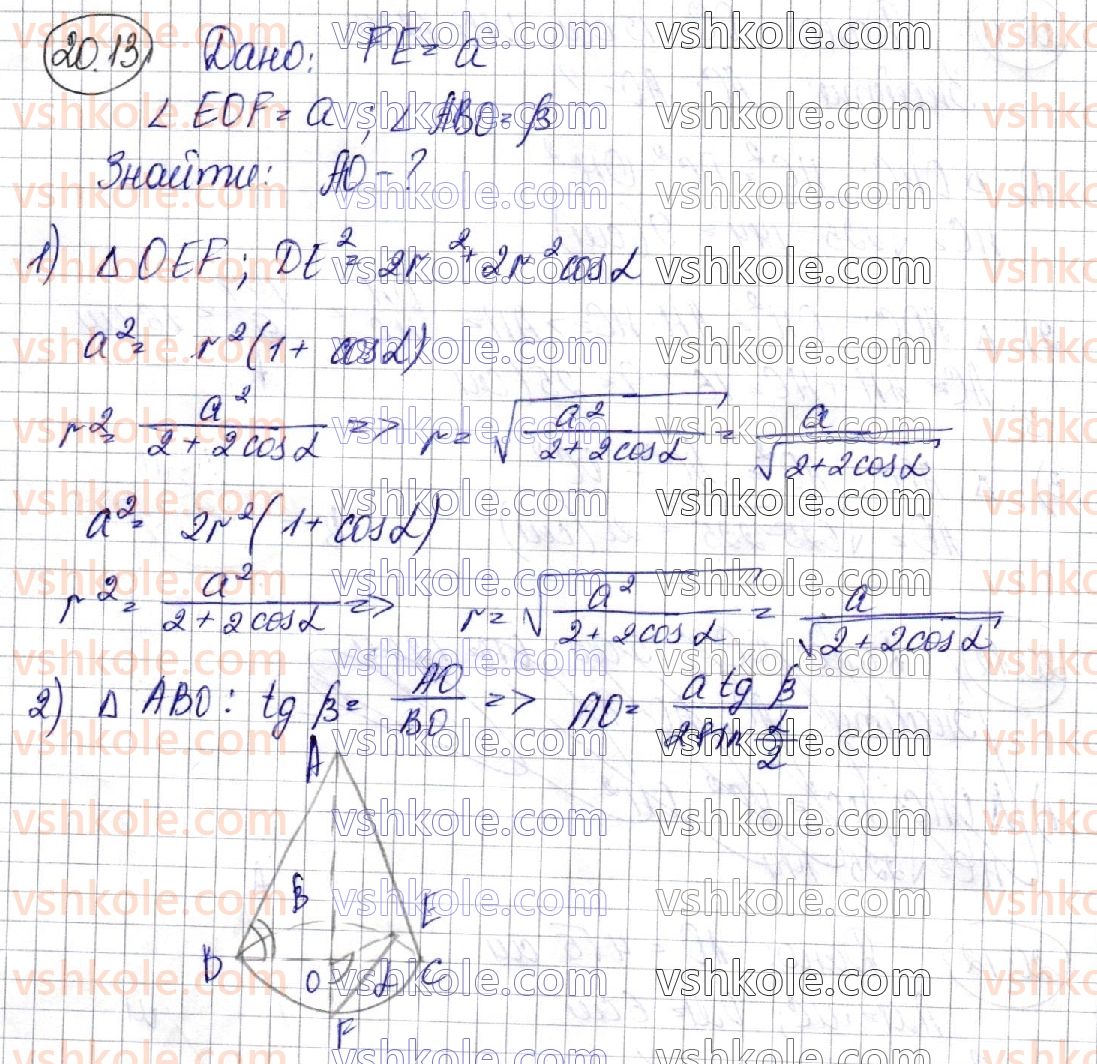 20.13 Дано: FE = a
∠ EOF = a; ∠ ABO = β
Знайти: AO - ?
1) Δ OEF; DE² = 2r² + 2r² cos α
a² = r² (1 + cos α)
r² = a² / (2 + 2 cos α) => r = √(a² / (2 + 2 cos α)) = a / √(2 + 2 cos α)
a² = 2r² (1 + cos α)
r² = a² / (2 + 2 cos α) => r = √(a² / (2 + 2 cos α)) = a / √(2 + 2 cos α)
2) Δ ABO: tg β = AO / BO => AO = a tg β / (2 sin α/2)
A
B
E
D
O
α
C
F
vshkole.com